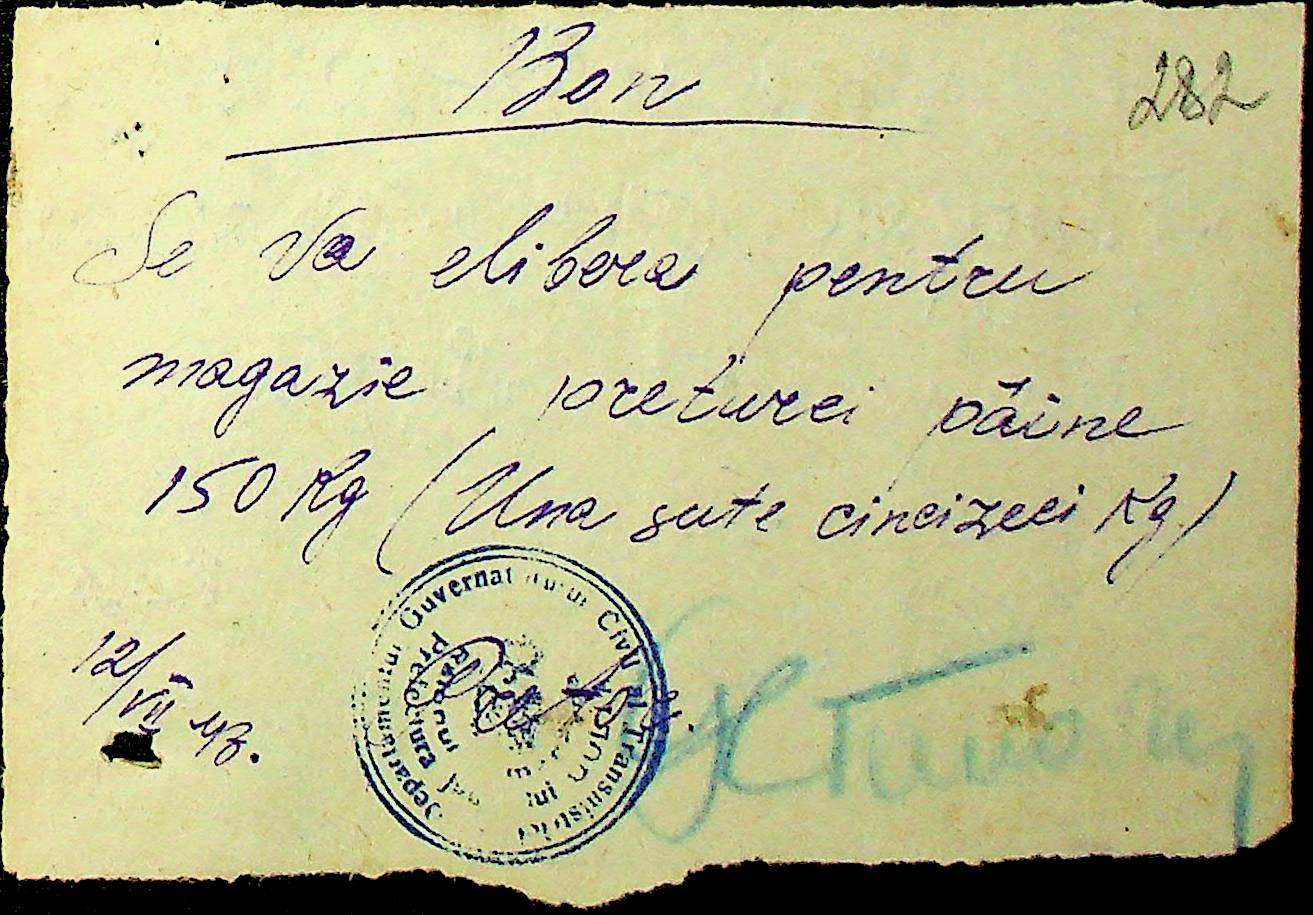 Bon
282
Se va elibera pentru
magazie preturei pâine
150 Kg (Una sute cincizeci Kg)
12/VII 43.
Guvernat Civil al Transnistriei
Departamentul